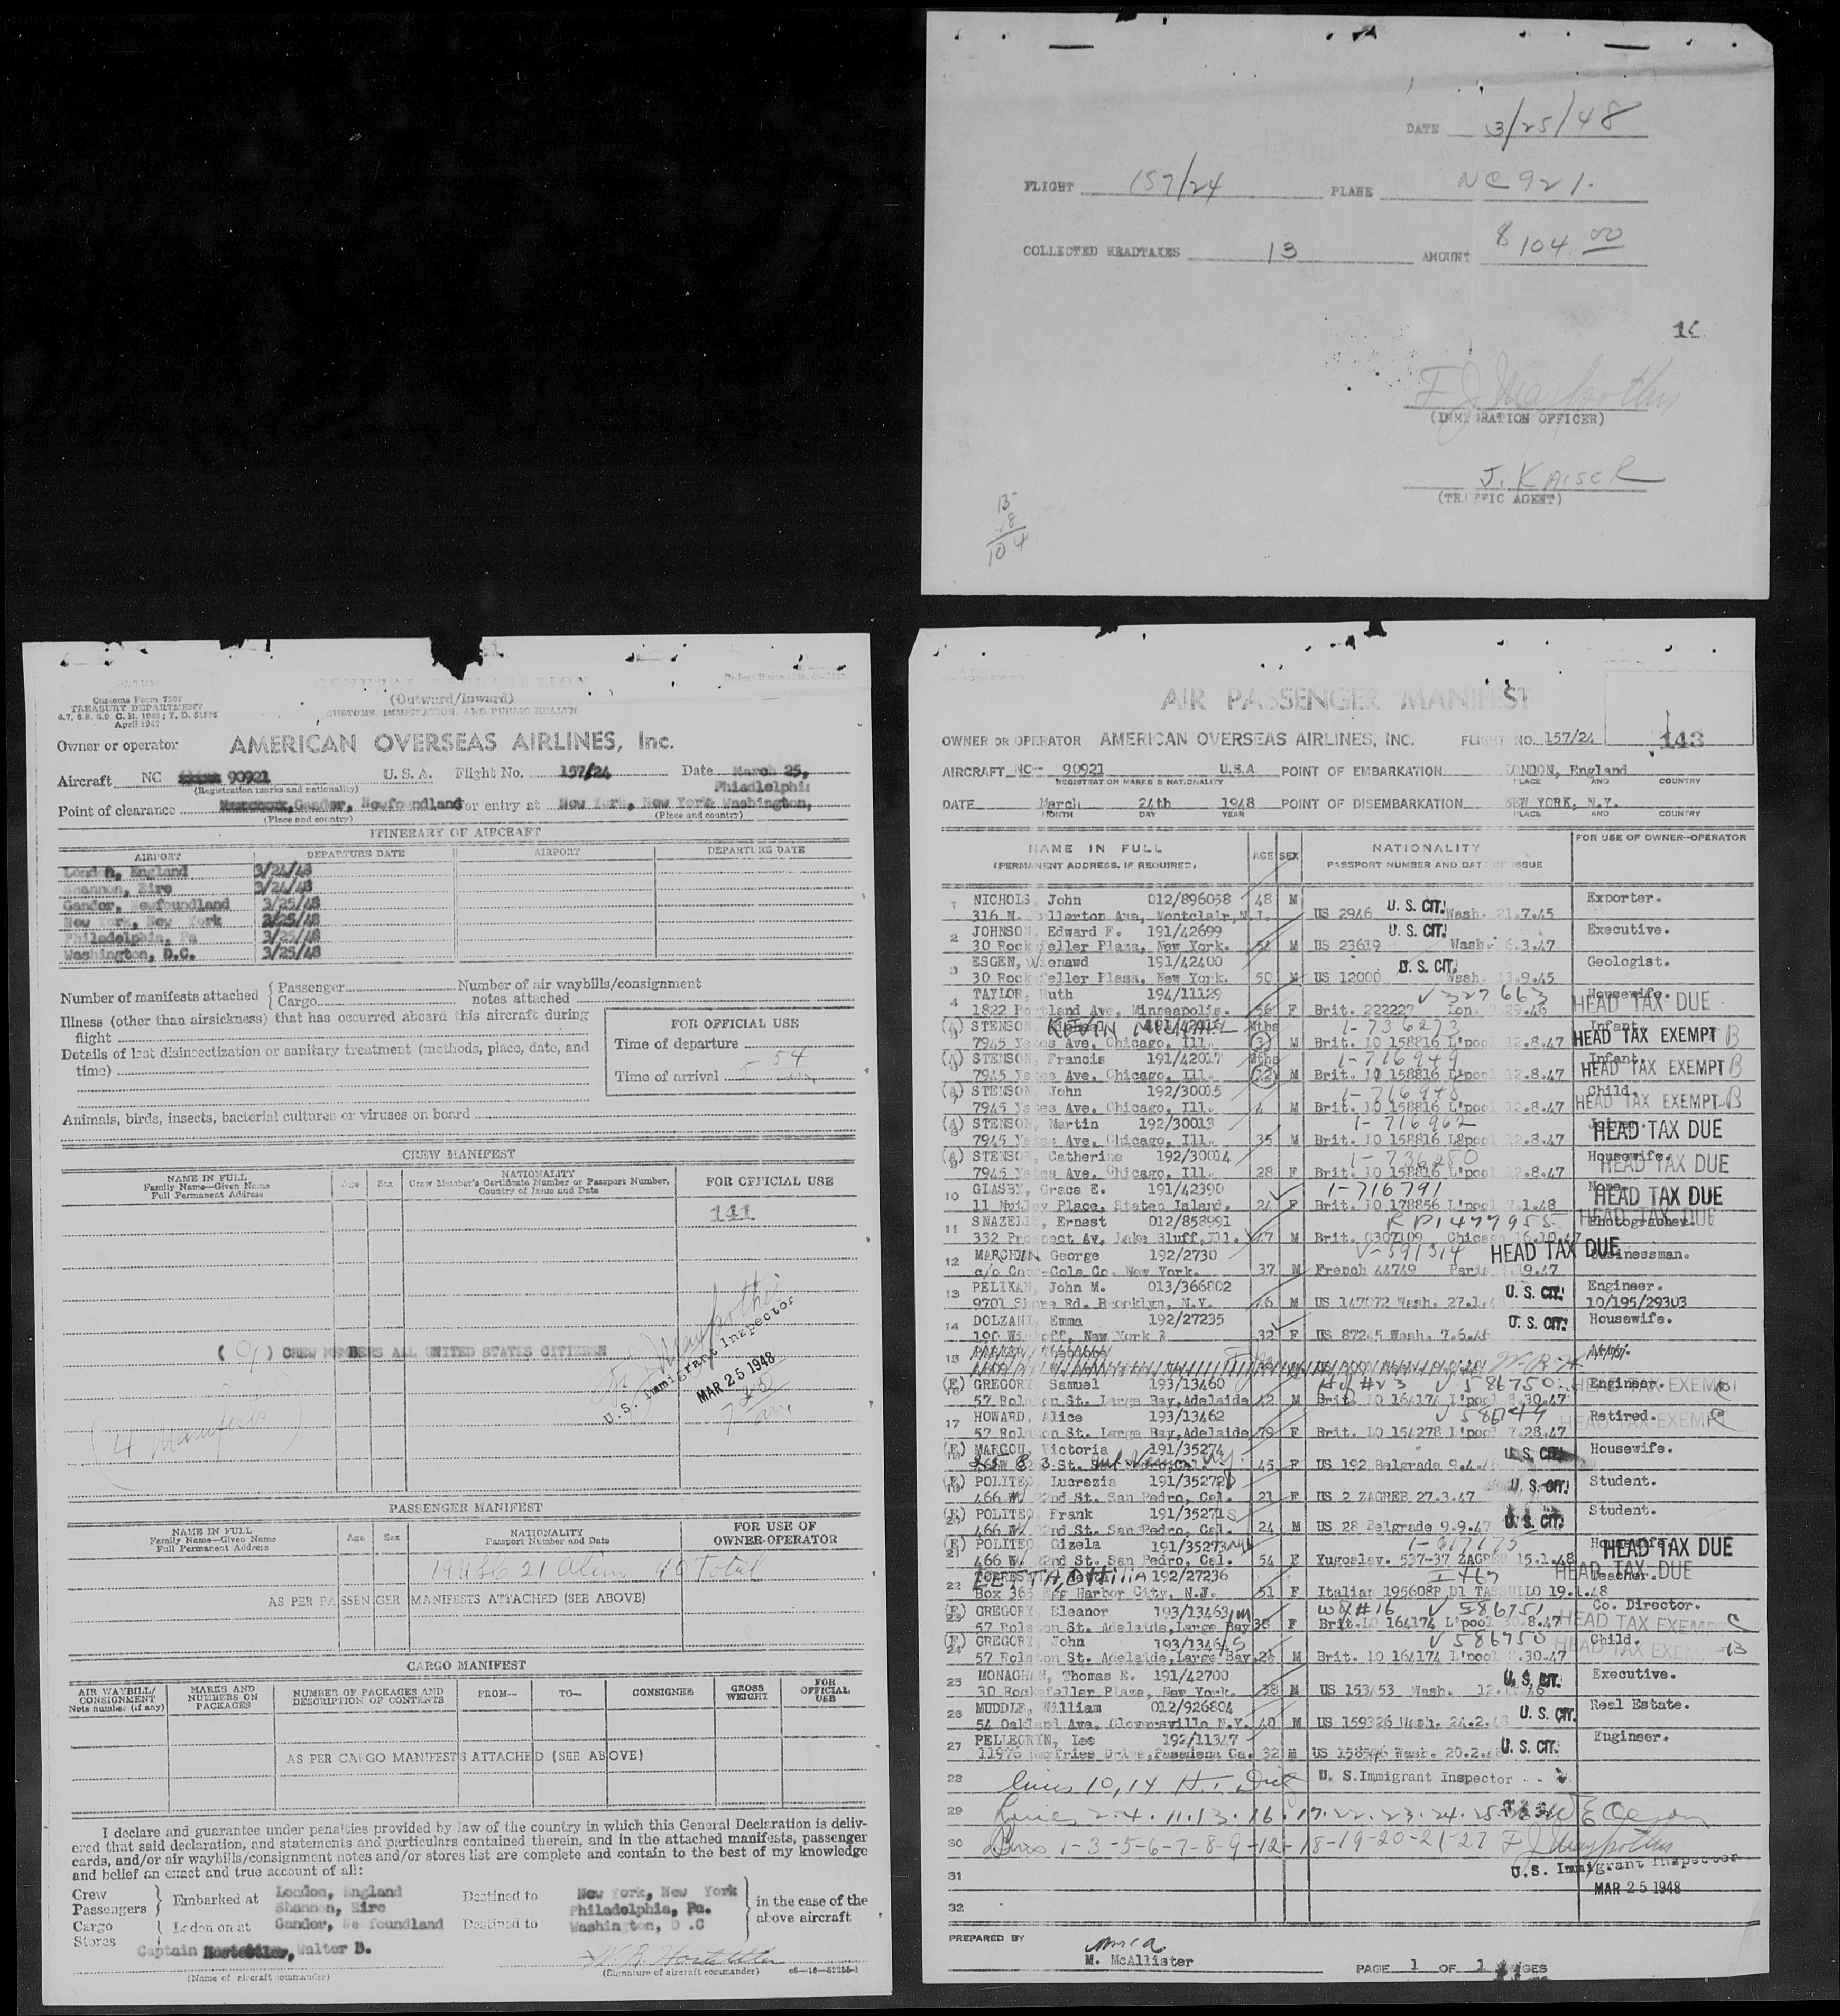 DATE 3/25/48
FLIGHT 157/24 PLANE NC 921.
COLLECTED HEADTAXES 13 AMOUNT $104.00
(IMMIGRATION OFFICER)
J. KAISER
(TRAFFIC AGENT)
13
8
104
Customs Form 7507
TREASURY DEPARTMENT
April 1947
GENERAL DECLARATION
(Outward/Inward)
CUSTOMS, IMMIGRATION, AND PUBLIC HEALTH
Owner or operator AMERICAN OVERSEAS AIRLINES, Inc.
Aircraft NC 90921 U.S.A. Flight No. 157/24 Date March 25,
(Registration marks and nationality)
Point of clearance Gander, Newfoundland For entry at New York, New York Washington,
(Place and country) (Place and country)
ITINERARY OF AIRCRAFT
AIRPORT DEPARTURE DATE AIRPORT DEPARTURE DATE
London, England 3/24/48
Shannon, Eire 3/24/48
Gander, Newfoundland 3/25/48
New York, New York 3/25/48
Philadelphia, Pa 3/25/48
Washington, D.C. 3/25/48
Number of manifests attached { Passenger Number of air waybills/consignment
Cargo notes attached
Illness (other than airsickness) that has occurred aboard this aircraft during
flight
Details of last disinsectization or sanitary treatment (methods, place, date, and
time)
FOR OFFICIAL USE
Time of departure
Time of arrival
Animals, birds, insects, bacterial cultures or viruses on board
CREW MANIFEST
NAME IN FULL
Family Name—Given Name
Full Permanent Address
Age Sex
NATIONALITY
Crew Member's Certificate Number or Passport Number,
Country of Issue and Date
FOR OFFICIAL USE
141
(9) CREW MEMBERS ALL UNITED STATES CITIZEN
U.S. Immigrant Inspector
MAR 25 1948
(4 Manifests)
PASSENGER MANIFEST
NAME IN FULL
Family Name—Given Name
Full Permanent Address
Age Sex
NATIONALITY
Passport Number and Date
FOR USE OF
OWNER-OPERATOR
19 USC 21 Alien 40 Total
AS PER PASSENGER MANIFESTS ATTACHED (SEE ABOVE)
CARGO MANIFEST
AIR WAYBILL/
CONSIGNMENT
Note number (if any)
MARKS AND
NUMBERS ON
PACKAGES
NUMBER OF PACKAGES AND
DESCRIPTION OF CONTENTS
FROM— TO— CONSIGNEE
GROSS
WEIGHT
FOR
OFFICIAL
USE
AS PER CARGO MANIFESTS ATTACHED (SEE ABOVE)
I declare and guarantee under penalties provided by law of the country in which this General Declaration is deliv-
ered that said declaration, and statements and particulars contained therein, and in the attached manifests, passenger
cards, and/or air waybills/consignment notes and/or stores list are complete and contain to the best of my knowledge
and belief an exact and true account of all:
Crew
Passengers } Embarked at London, England Destined to New York, New York
Shannon, Eire Philadelphia, Pa. in the case of the
Cargo
Stores } Laden on at Gander, Newfoundland Destined to Washington, D.C above aircraft
Captain Hostetler, Walter B.
(Name of aircraft commander) (Signature of aircraft commander)
AIR PASSENGER MANIFEST
OWNER OR OPERATOR AMERICAN OVERSEAS AIRLINES, INC. FLIGHT NO. 157/24 143
AIRCRAFT NC— 90921 U.S.A POINT OF EMBARKATION LONDON, England
REGISTRATION MARKS & NATIONALITY PLACE AND COUNTRY
DATE March 24th 1948 POINT OF DISEMBARKATION NEW YORK, N.Y.
MONTH DAY YEAR PLACE AND COUNTRY
NAME IN FULL
(PERMANENT ADDRESS, IF REQUIRED,
AGE SEX
NATIONALITY
PASSPORT NUMBER AND DATE OF ISSUE
FOR USE OF OWNER-OPERATOR
1 NICHOLS, John 012/896058 48 M U.S. CIT. Exporter.
316 N. Fullerton Ave, Montclair, N.J. US 2946 Wash. 21.7.45
2 JOHNSON, Edward F. 191/42699 U.S. CIT. Executive.
30 Rockefeller Plaza, New York. 54 M US 23619 Wash. 6.3.47
3 ESGEN, Wienawd 191/42400 U.S. CIT. Geologist.
30 Rockefeller Plaza, New York. 50 M US 12000 Wash. 13.9.45
4 TAYLOR, Ruth 194/11129 V327663 Housewife. HEAD TAX DUE
1822 Portland Ave, Minneapolis. 56 F Brit. 222227 Lon.
STENSON, KEVIN MICHAEL Mths 1-736273 Infant. HEAD TAX EXEMPT B
7945 Yates Ave, Chicago, Ill. (3) M Brit. LO 158816 L'pool 12.8.47
STENSON, Francis 191/42017 Mths 1-716949 Infant. HEAD TAX EXEMPT B
7945 Yates Ave, Chicago, Ill. (22) M Brit. LO 158816 L'pool 12.8.47
STENSON, John 192/30015 1-716948 Child. HEAD TAX EXEMPT B
7945 Yates Ave, Chicago, Ill. 4 M Brit. LO 158816 L'pool 12.8.47
STENSON, Martin 192/30013 1-716962 HEAD TAX DUE
7945 Yates Ave, Chicago, Ill. 35 M Brit. LO 158816 L'pool 12.8.47
STENSON, Catherine 192/30014 1-736280 Housewife. HEAD TAX DUE
7945 Yates Ave, Chicago, Ill. 28 F Brit. LO 158816 L'pool 12.8.47
10 GLASBY, Grace E. 191/42390 1-716791 None. HEAD TAX DUE
11 Place, Staten Island. 24 F Brit. LO 178856 L'pool .1.48
11 SNAZELL, Ernest 012/858991 RP1477955 Photographer. HEAD TAX DUE
332 Prospect Av, Lake Bluff, Ill. 47 M Brit. C307109 Chicago 16.10.47
12 George 192/2730 V-391314 HEAD TAX DUE Businessman.
c/o Coca-Cola Co. New York. 37 M French 44749 Paris .19.47
13 PELIKAN, John M. 013/366802 U.S. CIT. Engineer.
9701 Shore Rd. Brooklyn, N.Y. 46 M US 147072 Wash. 27.1. 10/195/29303
14 DOLZANI, Emma 192/27235 U.S. CIT. Housewife.
190 Wickoff, New York 32 F US 87245 Wash. 7.6.46
15
GREGORY, Samuel 193/13460 V 586750 Engineer. HEAD TAX EXEMPT
57 Rolston St. Large Bay, Adelaide 42 M Brit. LO 164174 L'pool 8.30.47
17 HOWARD, Alice 193/13462 Retired. HEAD TAX EXEMPT
57 Rolston St. Large Bay, Adelaide 79 F Brit. LO 154278 L'pool 7.28.47
MARCOU, Victoria 191/35274 U.S. CIT. Housewife.
45 F US 192 Belgrade 9.4.
POLITEO, Lucrezia 191/35272 U.S. CIT. Student.
466 W 22nd St. San Pedro, Cal. 21 F US 2 ZAGREB 27.3.47
POLITEO, Frank 191/35271 U.S. CIT. Student.
466 W 22nd St. San Pedro, Cal. 24 M US 28 Belgrade 9.9.47
POLITEO, Gizela 191/35273 Housewife. HEAD TAX DUE
466 W. 22nd St. San Pedro, Cal. 54 F Yugoslav. 537-37 ZAGREB 15.1.48
22 192/27236 I 467 Teacher. HEAD TAX DUE
Box 365 Egg Harbor City, N.J. 51 F Italian 195608P D1 TASSULLO 19.1.48
GREGORY, Eleanor 193/13463 V 586751 Co. Director. HEAD TAX EXEMPT C
57 Rolston St. Adelaide, Large Bay 38 F Brit. LO 164174 L'pool 8.47
GREGORY, John 193/13464 V 586750 Child. HEAD TAX EXEMPT B
57 Rolston St. Adelaide, Large Bay M Brit. LO 164174 L'pool 8.30.47
25 MONAGHAN, Thomas E. 191/42700 U.S. CIT. Executive.
30 Rockefeller Plaza, New York. 38 M US 153453 Wash.
26 MUDDLE, William 012/926804 U.S. CIT. Real Estate.
54 Oakland Ave. Gloversville N.Y. 40 M US 159326 Wash. 24.2.48
27 PELLEGRIN, Leo 192/11347 U.S. CIT. Engineer.
Drive, Pasadena Ca. 32 M Wash. 20.2.
28 Lines 10, 14 H.T. Due U. S. Immigrant Inspector
29 Lines 2.4.11.13.16.17.22.23.24.25.26
30 Lines 1-3-5-6-7-8-9-12-18-19-20-21-27
31 U.S. Immigrant Inspector
MAR 25 1948
32
PREPARED BY
M. McAllister
PAGE 1 OF 1 PAGES